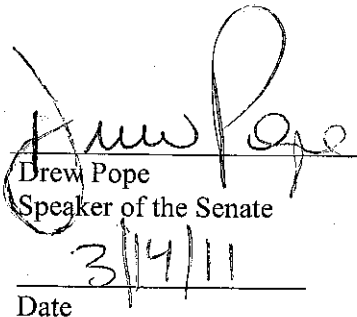 Drew Pope
Drew Pope
Speaker of the Senate
3/14/11
Date